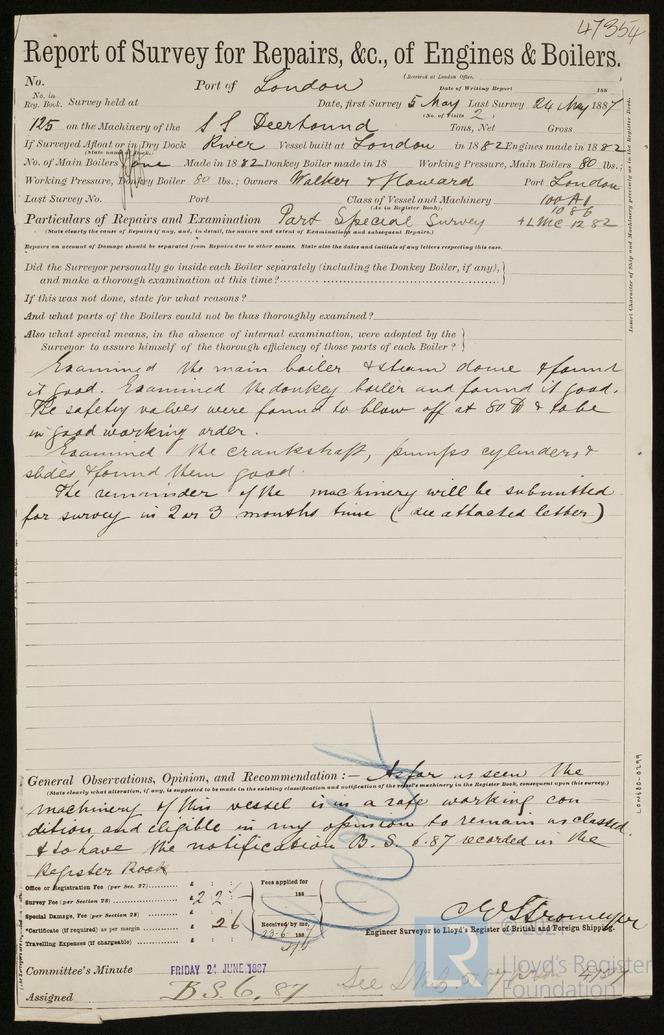 47354
Report of Survey for Repairs, &c., of Engines & Boilers.
(Received at London Office,
No. Port of London Date of Writing Report 188
No. in Reg. Book. Survey held at Date, first Survey 5 May Last Survey 24 May 1887
(No. of Visits 2)
125 on the Machinery of the S S Deerhound Tons, Net Gross
If Surveyed Afloat or in Dry Dock River Vessel built at London in 1882 Engines made in 1882
(State name of Dock.)
No. of Main Boilers One Made in 1882 Donkey Boiler made in 18 Working Pressure, Main Boilers 80 lbs.;
Working Pressure, Donkey Boiler 80 lbs.; Owners Walker & Howard Port London
Last Survey No. Port Class of Vessel and Machinery 100 A1
(As in Register Book). 10 86
Particulars of Repairs and Examination Part Special Survey + LMC 12 82
(State clearly the cause of Repairs if any, and, in detail, the nature and extent of Examination and subsequent Repairs.)
Repairs on account of Damage should be separated from Repairs due to other causes. State also the dates and initials of any letters respecting this case.
Did the Surveyor personally go inside each Boiler separately (including the Donkey Boiler, if any),
and make a thorough examination at this time?
If this was not done, state for what reasons?
And what parts of the Boilers could not be thus thoroughly examined?
Also what special means, in the absence of internal examination, were adopted by the
Surveyor to assure himself of the thorough efficiency of those parts of each Boiler?
Examined the main boiler & steam dome & found
it good. Examined the donkey boiler and found it good.
The safety valves were found to blow off at 80 lb & to be
in good working order.
Examined the crankshaft, pumps cylinders &
slides & found them good.
The remainder of the machinery will be submitted
for survey in 2 or 3 months time (see attached letter)
Insert Character of Ship and Machinery precisely as in the Register Book.
LON680-0299
General Observations, Opinion, and Recommendation:— As far as seen the
(State clearly what alteration, if any, is suggested to be made in the existing classification and notification of the vessel's machinery in the Register Book, consequent upon this survey.)
machinery of this vessel is in a safe working con
dition and eligible in my opinion to remain as classed
& to have the notification B. S. 6.87 recorded in the
Register Book
Office or Registration Fee (per Sec. 27) £ : : Fees applied for
Survey Fee (per Section 28) £ 2 2 : 188
Special Damage Fee (per Section 28) £ : :
*Certificate (if required) as per margin £ 2 6 Received by me,
Travelling Expenses (if chargeable) £ : : 23-6 1887
C E Stromeyer
Engineer Surveyor to Lloyd's Register of British and Foreign Shipping.
© 2021
Committee's Minute FRIDAY 24 JUNE 1887
Assigned B.S. 6, 87
Lloyd's Register
Foundation